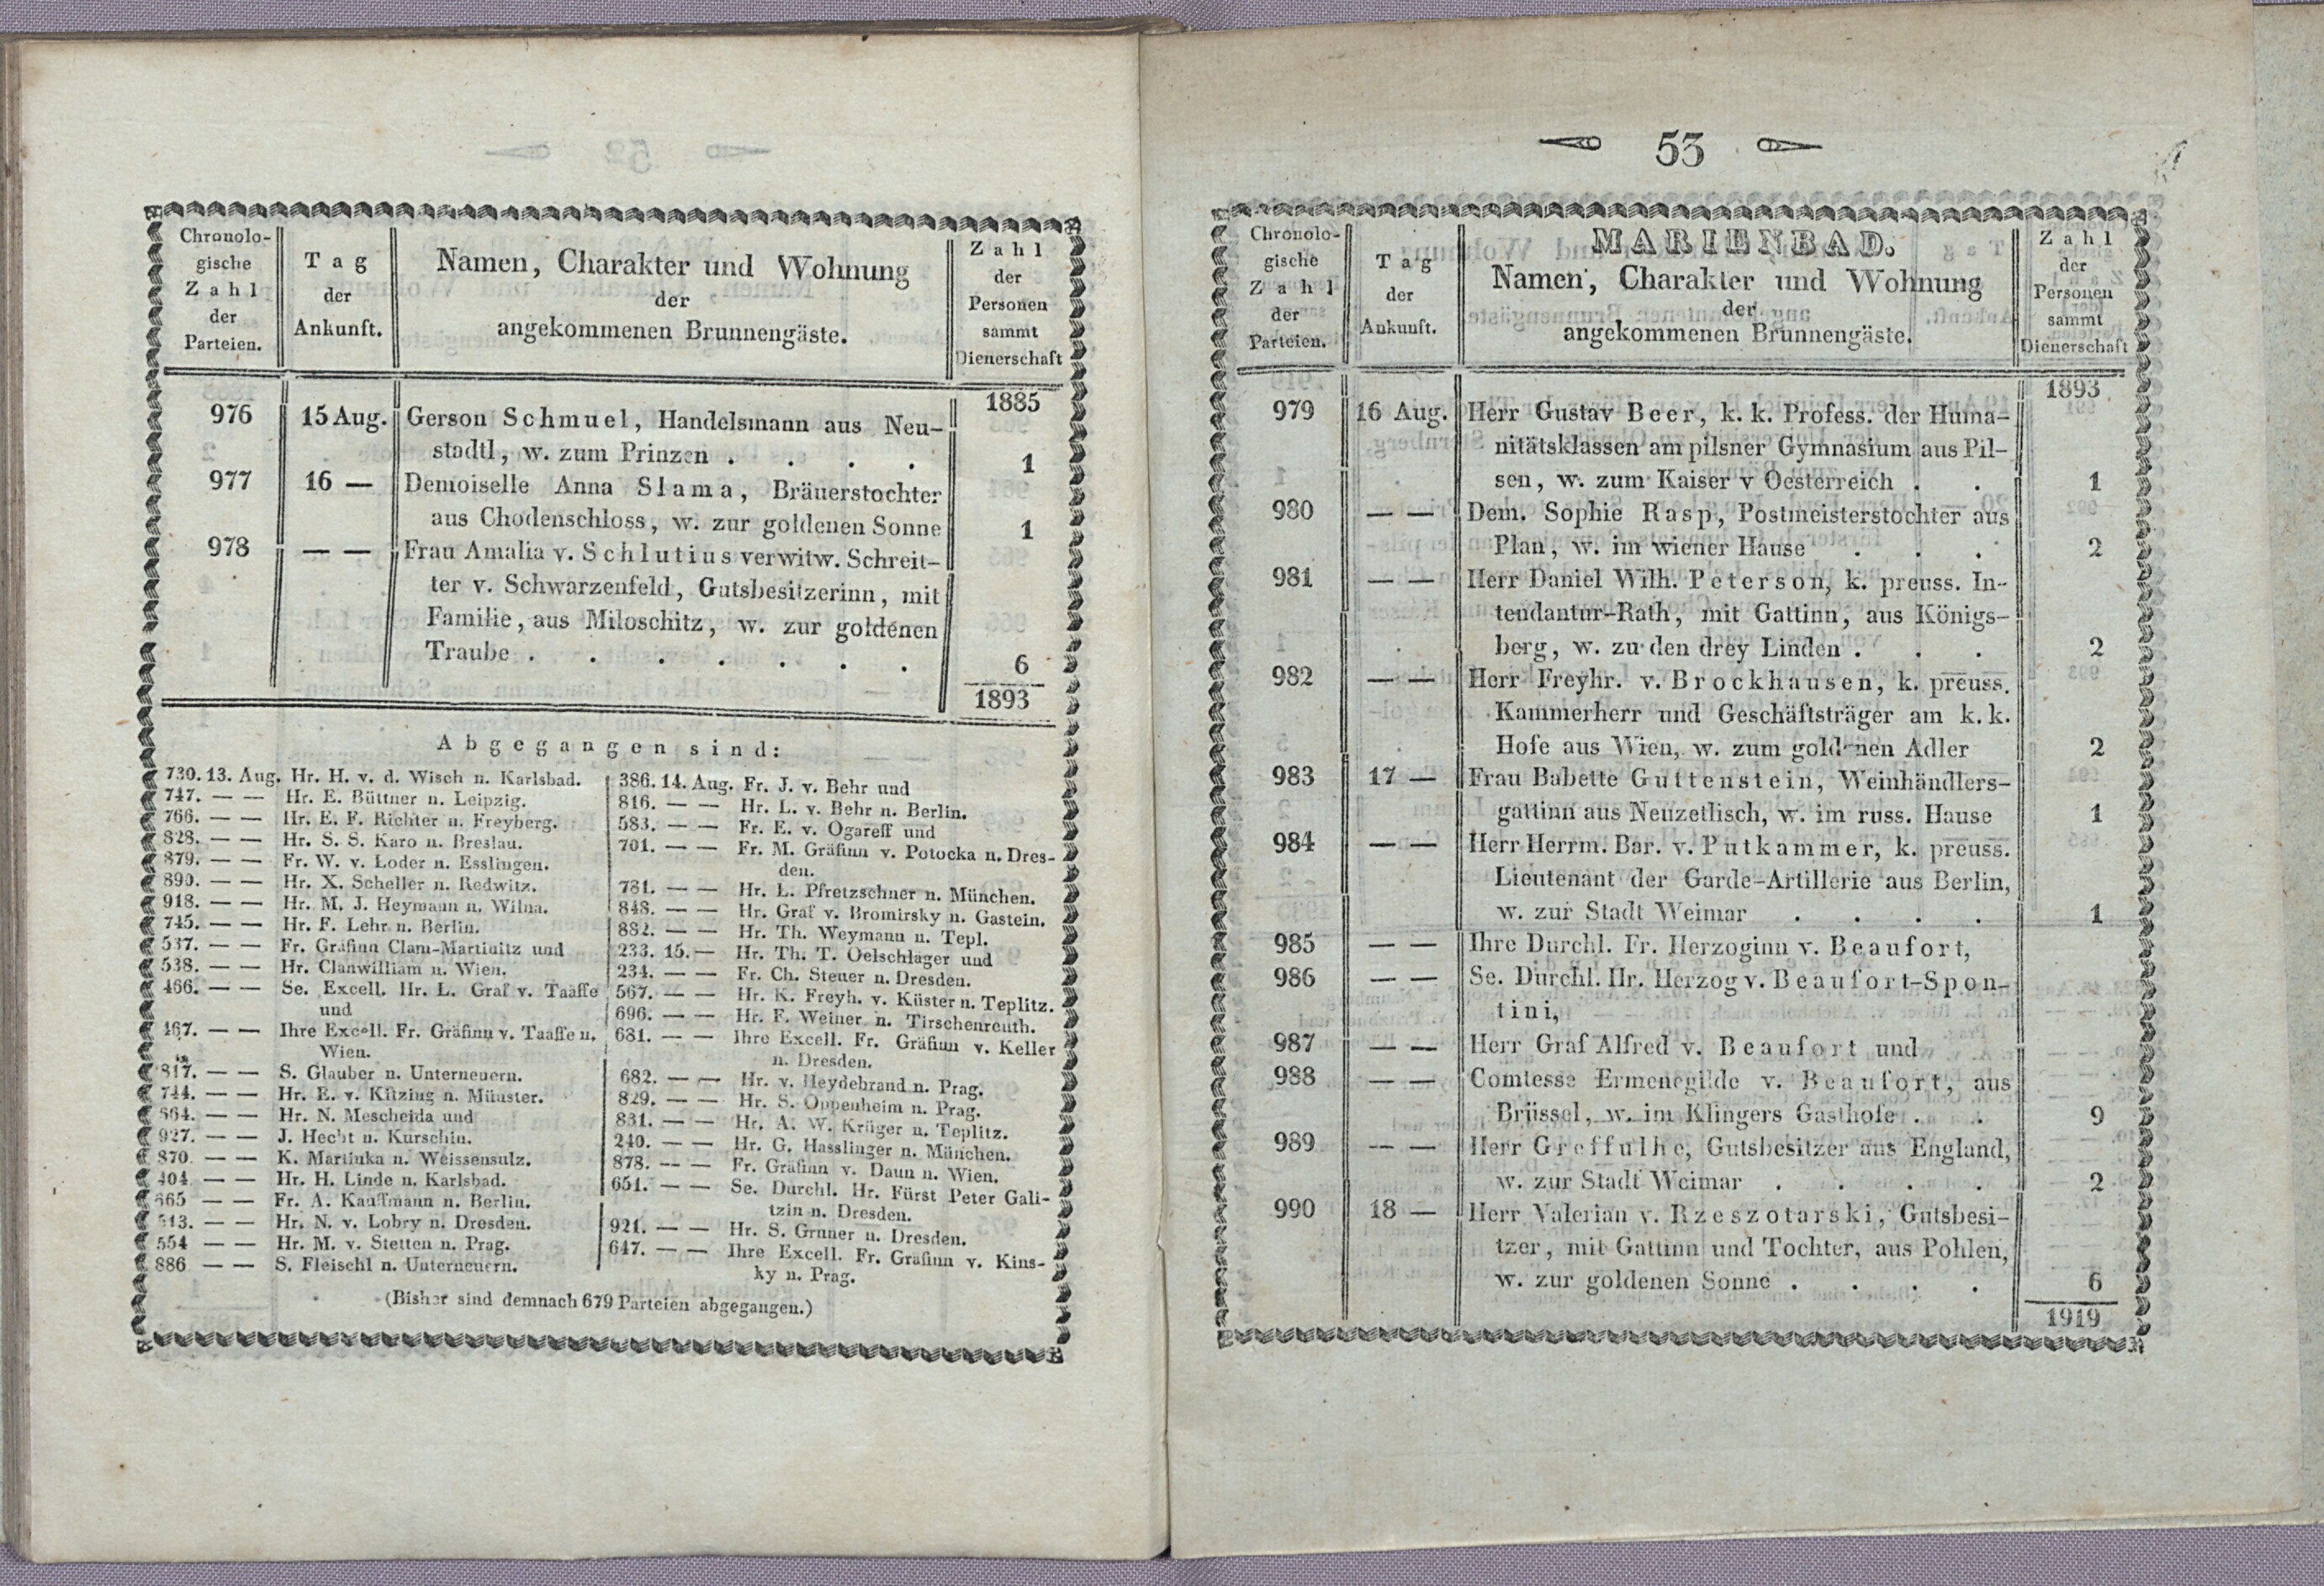 Chronolo-
gische
Zahl
der
Parteien.
Tag
der
Ankunft.
Namen, Charakter und Wohnung
der
angekommenen Brunnengäste.
Zahl
der
Personen
sammt
Dienerschaft
1885
976 15 Aug. Gerson Schmuel, Handelsmann aus Neu-
stadtl, w. zum Prinzen . . . . 1
977 16 — Demoiselle Anna Slama, Bräuerstochter
aus Chodenschloss, w. zur goldenen Sonne 1
978 — — Frau Amalia v. Schlutius verwitw. Schreit-
ter v. Schwarzenfeld, Gutsbesitzerinn, mit
Familie, aus Miloschitz, w. zur goldenen
Traube . . . . . . . 6
1893
Abgegangen sind:
730. 13. Aug. Hr. H. v. d. Wisch n. Karlsbad.
747. — — Hr. E. Büttner n. Leipzig.
766. — — Hr. E. F. Richter n. Freyberg.
828. — — Hr. S. S. Karo n. Breslau.
879. — — Fr. W. v. Loder n. Esslingen.
890. — — Hr. X. Scheller n. Redwitz.
918. — — Hr. M. J. Heymann n. Wilna.
745. — — Hr. F. Lehr n. Berlin.
537. — — Fr. Gräfinn Clam-Martinitz und
538. — — Hr. Clanwilliam n. Wien.
466. — — Se. Excell. Hr. L. Graf v. Taaffe
und
467. — — Ihre Excell. Fr. Gräfinn v. Taaffe n.
Wien.
817. — — S. Glauber n. Unterneuern.
744. — — Hr. E. v. Kitzing n. Münster.
864. — — Hr. N. Mescheida und
927. — — J. Hecht n. Kurschin.
870. — — K. Martinka n. Weissensulz.
404 — — Hr. H. Linde n. Karlsbad.
665 — — Fr. A. Kauffmann n. Berlin.
813. — — Hr. N. v. Lobry n. Dresden.
554 — — Hr. M. v. Stetten n. Prag.
886 — — S. Fleischl n. Unterneuern.
386. 14. Aug. Fr. J. v. Behr und
816. — — Hr. L. v. Behr n. Berlin.
583. — — Fr. E. v. Ogareff und
701. — — Fr. M. Gräfinn v. Potocka n. Dres-
den.
781. — — Hr. L. Pfretzschner n. München.
848. — — Hr. Graf v. Bromirsky n. Gastein.
882. — — Hr. Th. Weymann n. Tepl.
233. 15. — Hr. Th. T. Oelschläger und
234. — — Fr. Ch. Steuer n. Dresden.
567. — — Hr. K. Freyh. v. Küster n. Teplitz.
696. — — Hr. F. Weiner n. Tirschenreuth.
681. — — Ihre Excell. Fr. Gräfinn v. Keller
n. Dresden.
682. — — Hr. v. Heydebrand n. Prag.
829. — — Hr. S. Oppenheim n. Prag.
831. — — Hr. A. W. Krüger n. Teplitz.
240. — — Hr. G. Hasslinger n. München.
878. — — Fr. Gräfinn v. Daun n. Wien.
651. — — Se. Durchl. Hr. Fürst Peter Gali-
tzin n. Dresden.
921. — — Hr. S. Gruner n. Dresden.
647. — — Ihre Excell. Fr. Gräfinn v. Kins-
ky n. Prag.
(Bisher sind demnach 679 Parteien abgegangen.)
53
Chronolo-
gische
Zahl
der
Parteien.
Tag
der
Ankunft.
MARIENBAD.
Namen, Charakter und Wohnung
der
angekommenen Brunnengäste.
Zahl
der
Personen
sammt
Dienerschaft
1893
979 16 Aug. Herr Gustav Beer, k. k. Profess. der Huma-
nitätsklassen am pilsner Gymnasium aus Pil-
sen, w. zum Kaiser v Oesterreich . . 1
980 — — Dem. Sophie Rasp, Postmeisterstochter aus
Plan, w. im wiener Hause . . . 2
981 — — Herr Daniel Wilh. Peterson, k. preuss. In-
tendantur-Rath, mit Gattinn, aus Königs-
berg, w. zu den drey Linden . . . 2
982 — — Herr Freyhr. v. Brockhausen, k. preuss.
Kammerherr und Geschäftsträger am k. k.
Hofe aus Wien, w. zum goldenen Adler 2
983 17 — Frau Babette Guttenstein, Weinhändlers-
gattinn aus Neuzetlisch, w. im russ. Hause 1
984 — — Herr Herrm. Bar. v. Putkammer, k. preuss.
Lieutenant der Garde-Artillerie aus Berlin,
w. zur Stadt Weimar . . . . 1
985 — — Ihre Durchl. Fr. Herzoginn v. Beaufort,
986 — — Se. Durchl. Hr. Herzog v. Beaufort-Spon-
tini,
987 — — Herr Graf Alfred v. Beaufort und
988 — — Comtesse Ermenegilde v. Beaufort, aus
Brüssel, w. im Klingers Gasthofe . . 9
989 — — Herr Greffulhe, Gutsbesitzer aus England,
w. zur Stadt Weimar . . . . 2
990 18 — Herr Valerian v. Rzeszotarski, Gutsbesi-
tzer, mit Gattinn und Tochter, aus Pohlen,
w. zur goldenen Sonne . . . . 6
1919